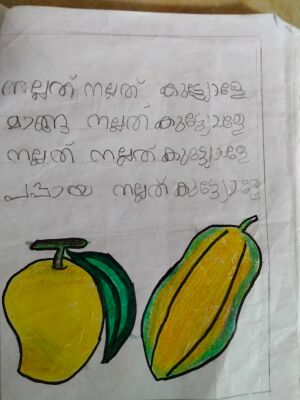 നല്ലത് നല്ലത് കുട്ട്യോളേ
മാങ്ങ നല്ലത് കുട്ട്യോളേ
നല്ലത് നല്ലത് കുട്ട്യോളേ
പപ്പായ നല്ലത് കുട്ട്യോളേ